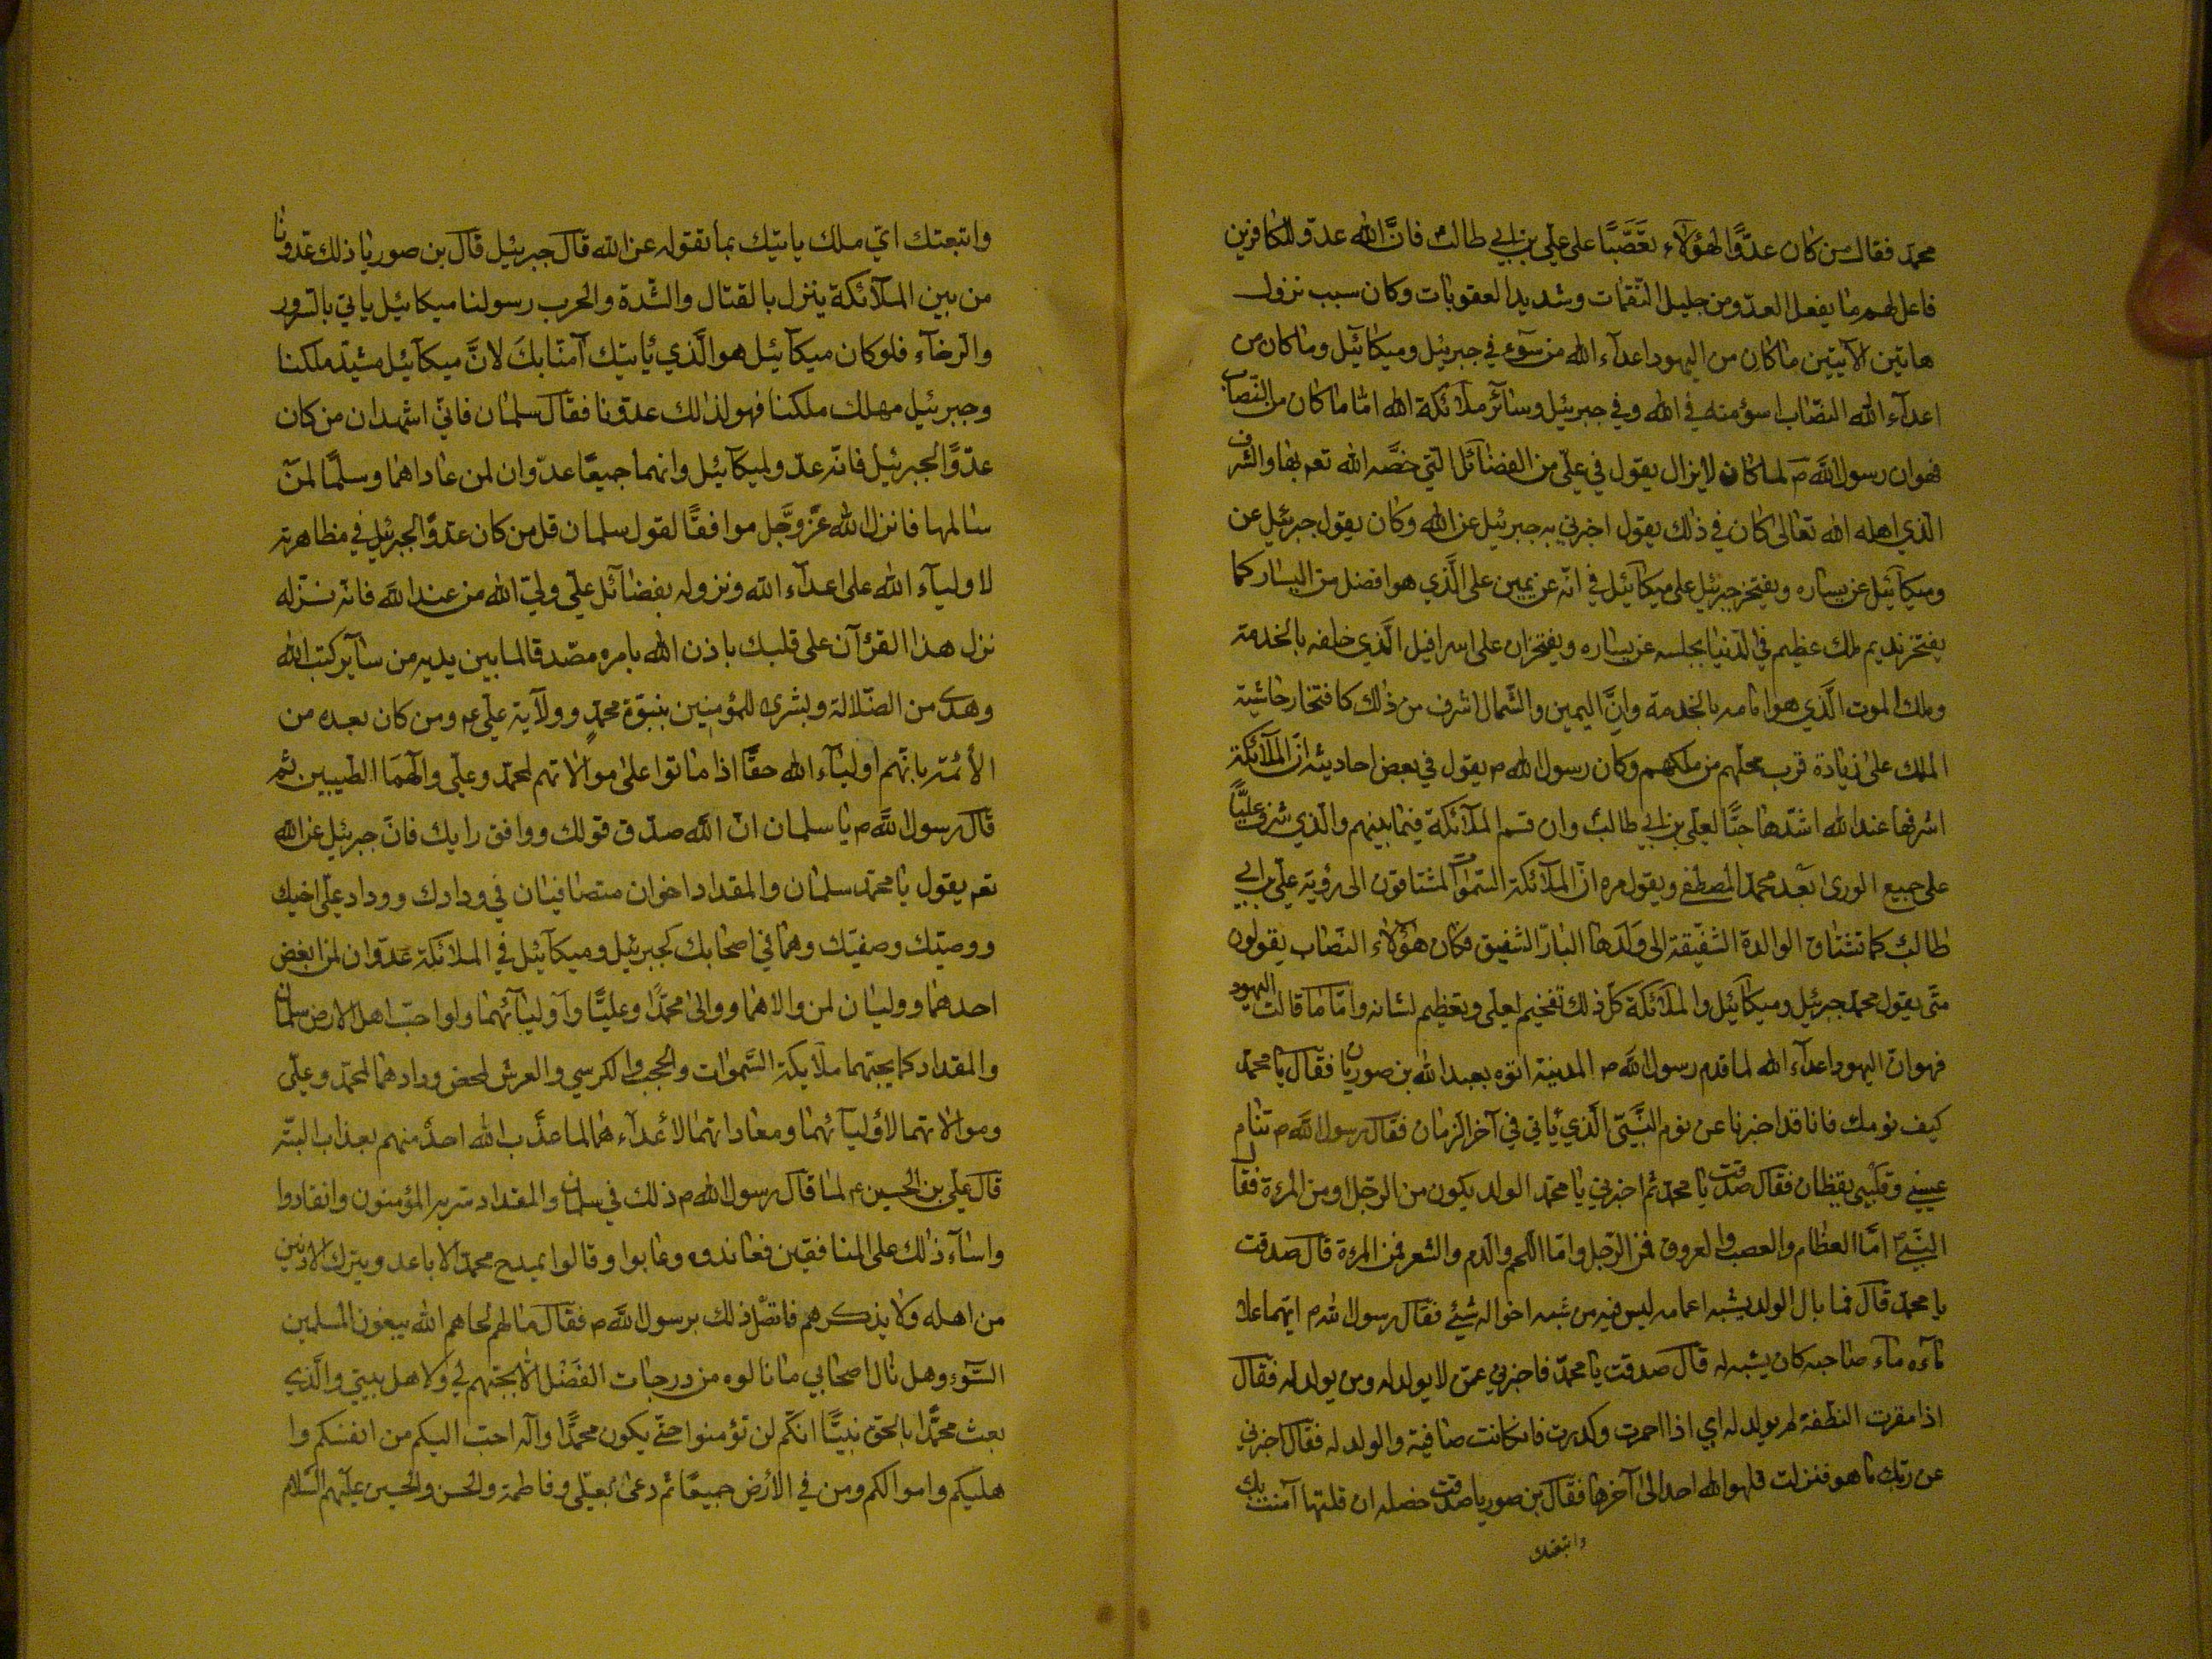 محمد فقال من كان عدوًّا لهؤلاء تعصّبًا على علي بن ابي طالب فانَّ الله عدوّ للكافرين
فاعل لهم ما يفعل العدو من جليل النقمات وشديد العقوبات وكان سبب نزول
هاتين الآيتين ما كان من اليهود اعداء الله من سوء في جبرئيل وميكائيل وما كان من
اعداء الله النصّاب اسوء منه في الله وفي جبرئيل وسائر ملائكة الله امّا ما كان من النصّاب
فهو ان رسول الله ص لما كان لا يزال يقول في علي من الفضائل التي خصّه الله تعم بها والشرف
الذي اهله الله تعالى كان في ذلك يقول اخبرني به جبرئيل عن الله وكان يقول جبرئيل عن
وميكائيل عن يساره ويفتخر جبرئيل على ميكائيل في انّه عن يمين علي الذي هو افضل من اليسار كما
يفتخر نديم ملك عظيم في الدنيا يجلسه عن يساره ويفتخران على اسرافيل الذي خلفه بالخدمة
وملك الموت الذي هو امامه بالخدمة وانَّ اليمين والشمال اشرف من ذلك كافتخار حاشية
الملك على زيادة قرب محلهم من ملكهم وكان رسول الله م يقول في بعض احاديثه انّ الملائكة
اشرفها عند الله اشدّها حبًّا لعلي بن ابي طالب وان قسم الملائكة فيما بينهم والذي شرف عليًّا
على جميع الورى بعد محمد المصطفى ويقول مره انّ الملائكة السموات لمشتاقون الى رؤية علي بن ابي
طالب كما تشتاق الوالدة الشفيقة الى ولدها البارّ الشفيق فكان هؤلاء النصّاب يقولون
متى يقول محمد جبرئيل وميكائيل والملائكة كل ذلك تفخيم لعلي وتعظيم لشانه وامّا ما قالت اليهود
فهو ان اليهود اعداء الله لما قدم رسول الله م المدينة اتوه بعبد الله بن صوريا فقال يا محمد
كيف نومك فانا قد اخبرنا عن نوم النبي الذي يأتي في آخر الزمان فقال رسول الله م تنام
عيني وقلبي يقظان فقال صدقت يا محمد ثم اخبرني يا محمد الولد يكون من الرجل او من المرءة فقال
النبي امّا العظام والعصب والعروق فمن الرجل وامّا اللحم والدم والشعر فمن المرءة قال صدقت
يا محمد قال فما بال الولد يشبه اعمامه ليس فيه من شبه اخواله شيئ فقال رسول الله م ايهما علا
ماءه ماء صاحبه كان يشبه له قال صدقت يا محمد فاخبرني عمن لا يولد له ومن يولد له فقال
اذا مقرت النطفة لم يولد له اي اذا احمرت وكدرت فان كانت صافية والولد له فقال اخبرني
عن ربك ما هو فنزلت قل هو الله احد الى آخرها فقال بن صوريا صدقت خصلة ان قلتها آمنت بك
واتبعتك
واتبعتك اي ملك ياتيك بما تقوله عن الله قال جبرئيل قال بن صوريا ذلك عدونا
من بين الملائكة ينزل بالقتال والشدة والحرب رسولنا ميكائيل ياتي بالسرور
والرخاء فلو كان ميكائيل هو الذي يأتيك آمنّا بك لانَّ ميكائيل مشيد ملكنا
وجبرئيل مهلك ملكنا فهو لذلك عدوّنا فقال سلمان فاني اشهد ان من كان
عدوًّا لجبرئيل فانّه عدو لميكائيل وانهما جميعًا عدوّان لمن عاداهما وسلمًا لمن
سالمهما فانزل الله عزّ وجّل موافقًا لقول سلمان قل من كان عدوًّا لجبرئيل في مظاهرته
لاولياء الله على اعداء الله ونزوله بفضائل علي وليّ الله من عند الله فانه نزّله
نزل هذا القرآن على قلبك باذن الله بامره مصدقا لما بين يديه من سائر كتب الله
وهدى من الضلالة وبشرى للمؤمنين بنبوّة محمد وولاية علي ع ومن كان بعده من
الأئمة بانهم اولياء الله حقًّا اذا ماتوا على موالاتهم لمحمد وعلي وآلهما الطيبين ثم
قال رسول الله م يا سلمان ان الله صدّق قولك ووافق رايك فانّ جبرئيل عن الله
تعم يقول يا محمد سلمان والمقداد اخوان متصافيان في ودادك ووداد علي اخيك
ووصيّك وصفيّك وهما في اصحابك كجبرئيل وميكائيل في الملائكة عدوّان لمن ابغض
احدهما ووليان لمن والاهما ووالى محمدًا وعليًّا واوليائهما ولو احبّ اهل الارض سلمان
والمقداد كما يحبّهما ملايكة السموات والحجب والكرسي والعرش لمحض ودادهما لمحمد وعلي
وموالاتهما لاوليائهما ومعاداتهما لأعداءهما لما عذّب الله احدًا منهم بعذاب البتّه
قال علي بن الحسين ع لما قال رسول الله م ذلك في سلمان والمقداد سر به المؤمنون وانقادوا
واساء ذلك على المنافقين فعاندوه وعابوا وقالوا يمدح محمد الاباعد ويترك الادنين
من اهله ولا يذكرهم فاتصل ذلك برسول الله م فقال ما لهم لحاهم الله يبغون للمسلمين
السّوء وهل نال اصحابي ما نالوه من درجات الفضل الا بحبّهم لي ولاهل بيتي والذي
بعث محمدًا بالحق نبيًّا انكم لن تؤمنوا حتى يكون محمدًا وآله احب اليكم من انفسكم وا
هليكم واموالكم ومن في الأرض جميعًا ثم دعى بعلي وفاطمة والحسن والحسين عليهم السلام